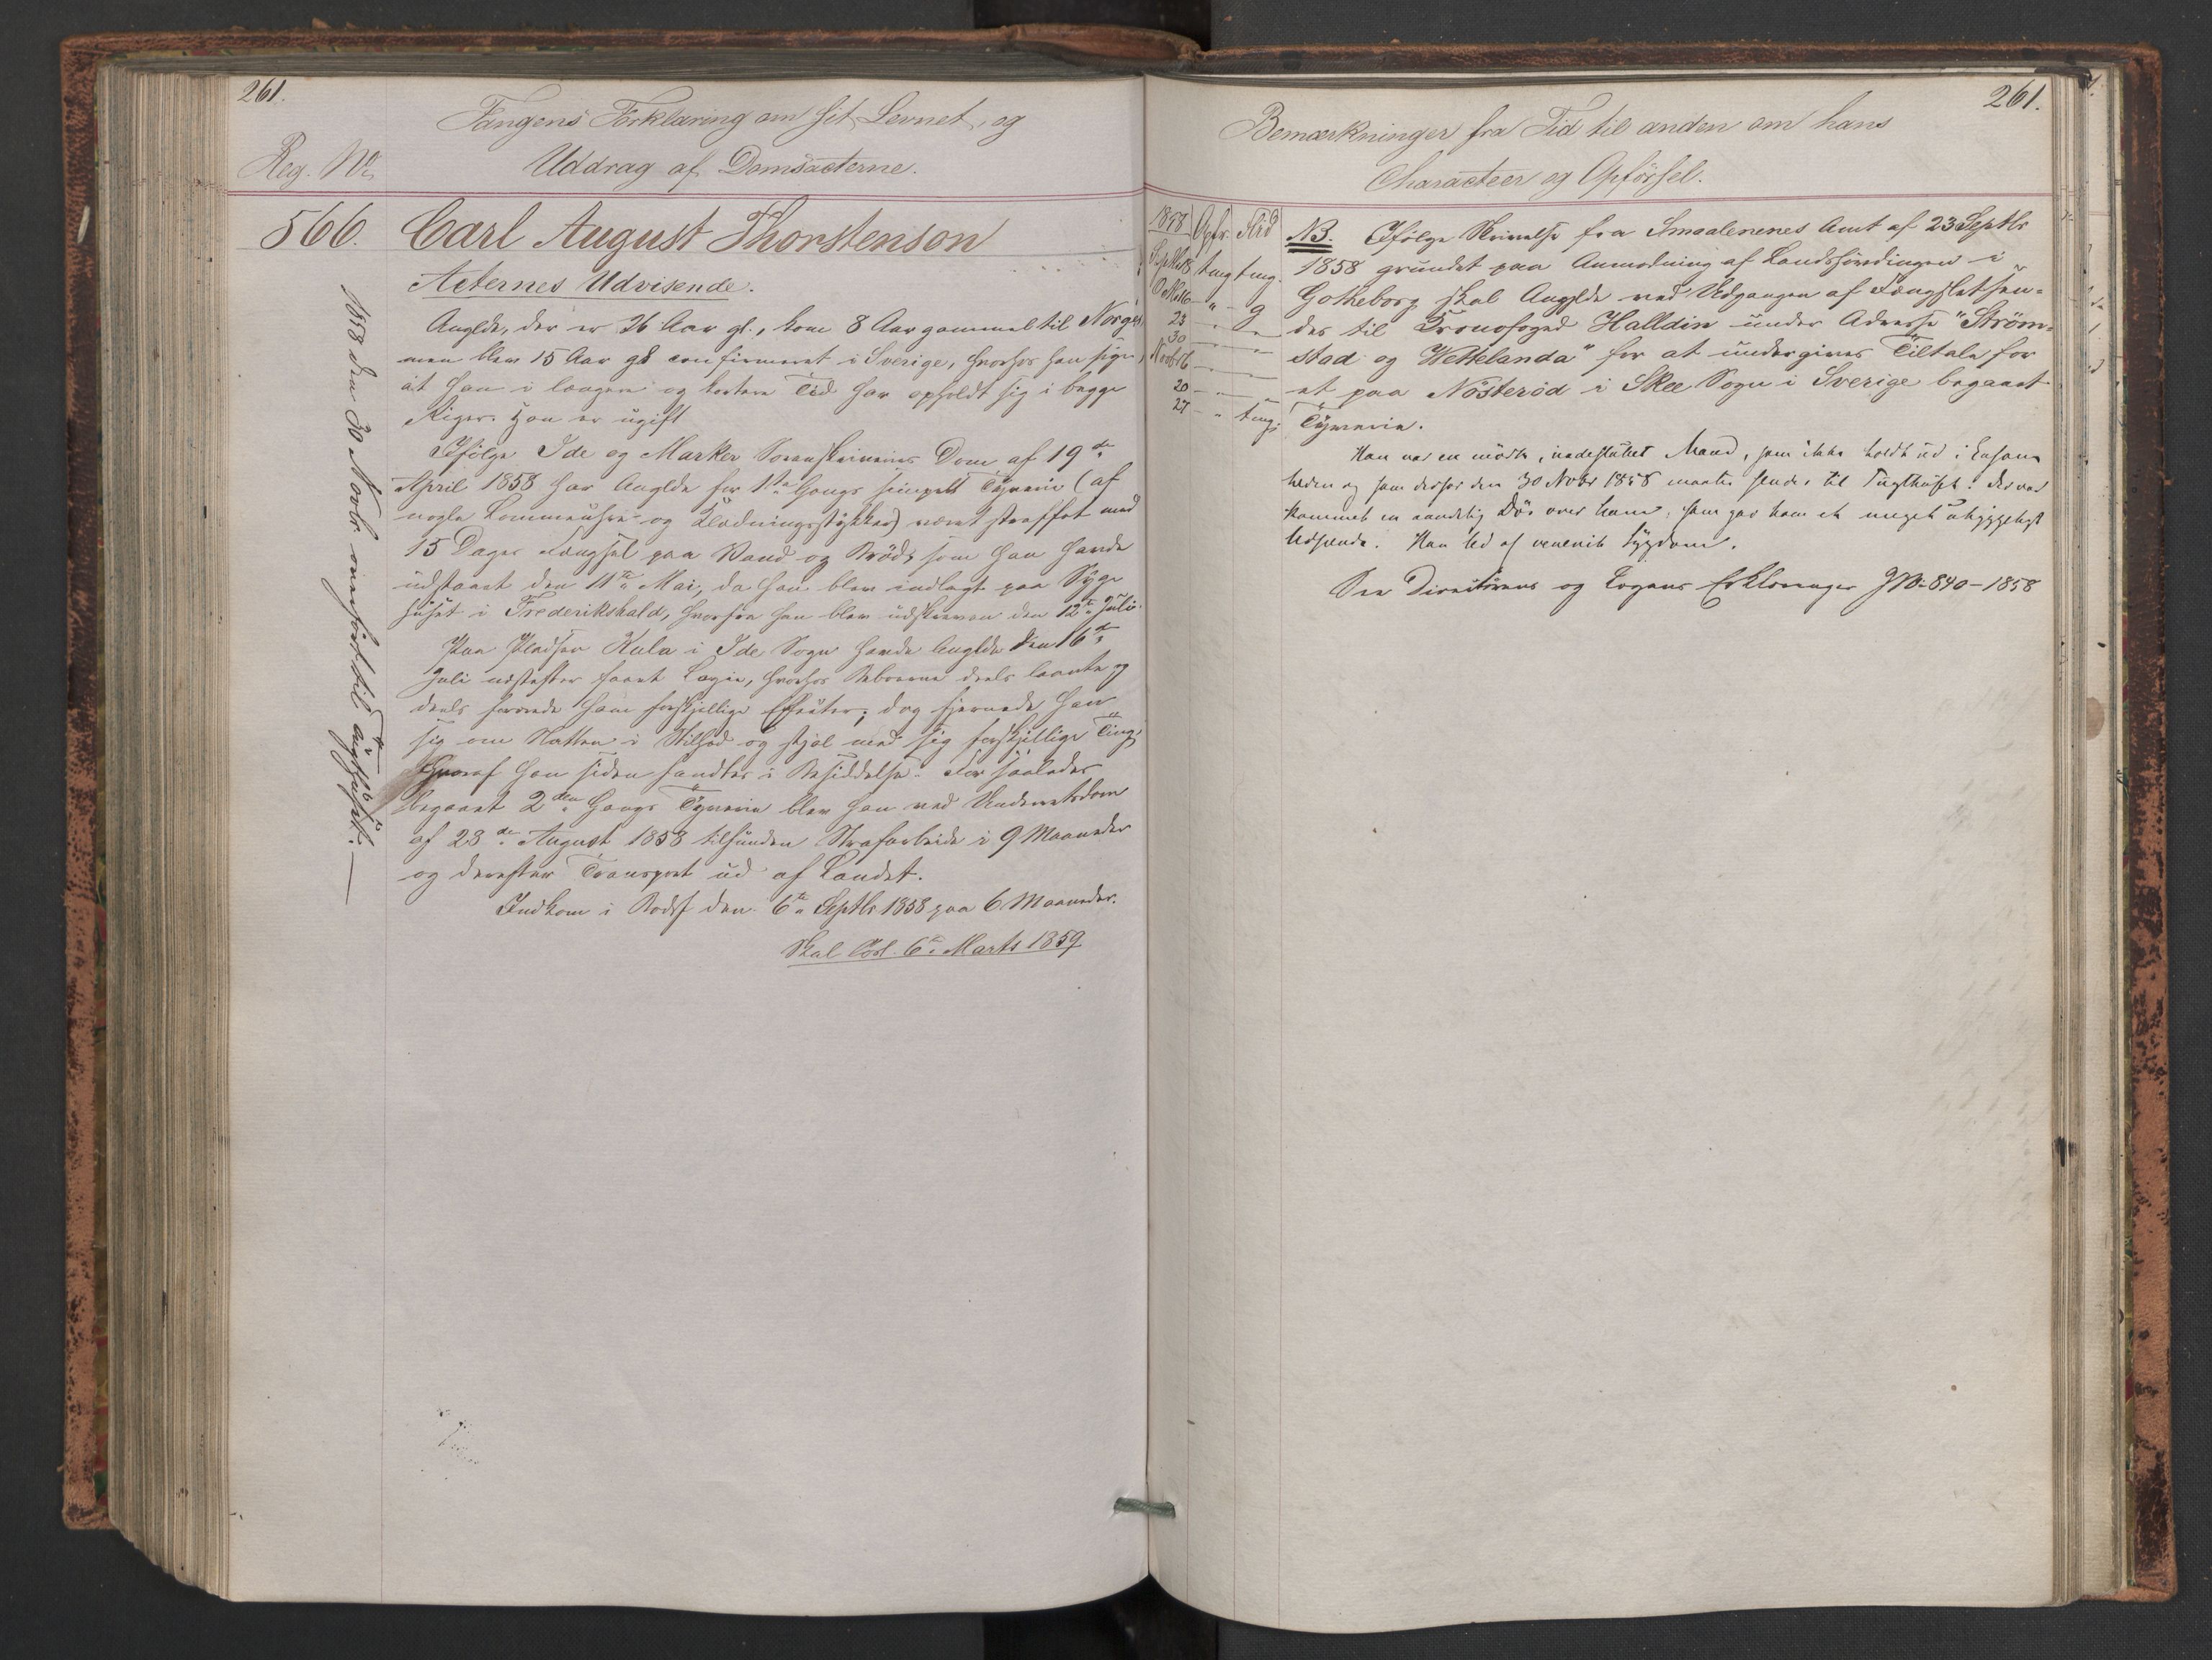 261.
Fangens Forklaring om sit Levnet, og
Reg. No.
Uddrag af Domsacterne.
566. Carl August Thorstenson
Acternes Udvisende.
Angldr, der er 26 Aar gl., kom 8 Aar gammel til Norge,
men blev 15 Aar gl confirmeret i Sverige, hvorhos han siger,
at han i længere og kortere Tid har opholdt sig i begge
Riger. Han er ugift
Ifølge Ide og Marker Sorenskriveries Dom af 19de
April 1858 har Angldr for 1ste Gangs simpelt Tyverie (af
nogle Lommeuhre og Klædningsstykker) været straffet med
15 Dages Fængsel paa Vand og Brød, som han havde
udstaaet den 11te Mai, da han blev indlagt paa Syge
huset i Frederikshald, hvorfra han blev udskreven den 12te Juli.
Paa Pladsen Kula i Ide Sogn havde Angldr den 16de
Juli næstefter faaet Logie, hvorhos Beboerne deels laante og
deels forærede ham forskjellige Effecter; dog fjernede han
sig om Natten i Stilhed og stjal med sig forskjellige Ting,
hvoraf han siden fandtes i Besiddelse. For saaledes
begaaet 2den Gangs Tyverie blev han ved Underretsdom
af 23de August 1858 tilfunden Strafarbeide i 9 Maaneder
og derefter Transport ud af Landet.
Indkom i Bodsf den 6te Septbr 1858 paa 6 Maaneder.
Skal Løsl. 6te Marts 1859
1858 den 30 Novbr overført til Tugthuset.
261.
Bemærkninger fra Tid til anden om hans
Characteer og Opførsel.
Opfr. Flid
Septbr 18 tmg tmg.
23
30
Novbr 6
20
27 tmg.
NB. Ifølge Skrivelse fra Smaalenenes Amt af 23 Septbr
1858 grundet paa Anmodning af Landshövdingen i
Gotheborg skal Angldr ved Udgangen af Fængslet sen-
des til Cronofoged Halldin under Adresse "Ström-
stad og Wettelanda" for at undergives Tiltale for
et paa Nösteröd i Skee Sogn i Sverige begaaet
Tyverie.
Han var en mørk, indesluttet Mand, som ikke holdt ud i Ensom
heden og som derfor den 30 Novbr 1858 maatte sendes til Tugthuset. Der var
kommet en aandelig Død over ham, som gav ham et meget uhyggeligt
Udseende. Han led af venerisk Sygdom.
See Directörens og Lægens Erklæringer JNo 840-1858